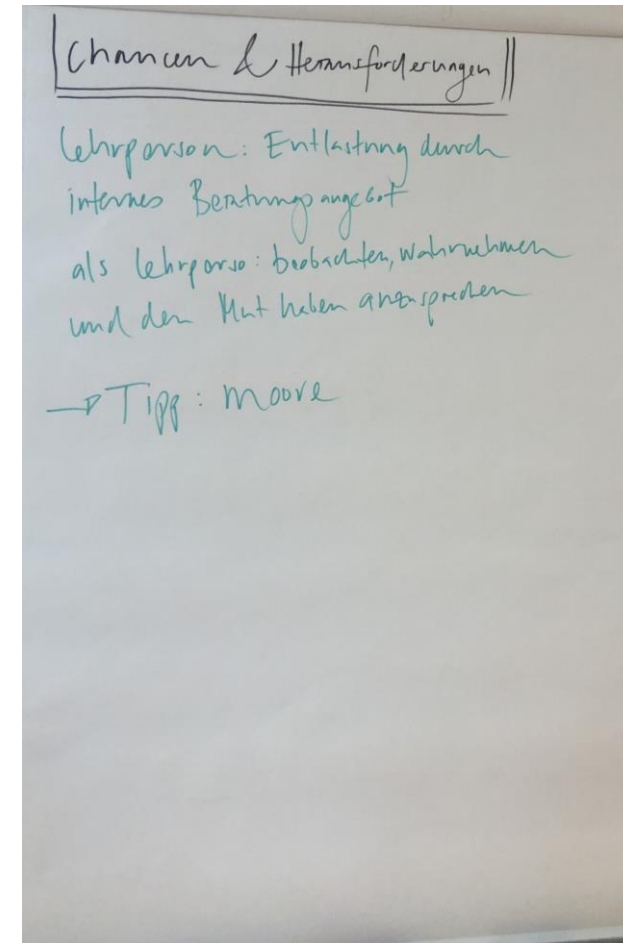 Chancen & Herausforderungen
Lehrperson: Entlastung durch
internes Beratungsangebot
als Lehrperso: beobachten, wahrnehmen
und den Mut haben anzusprechen
→ Tipp: moove